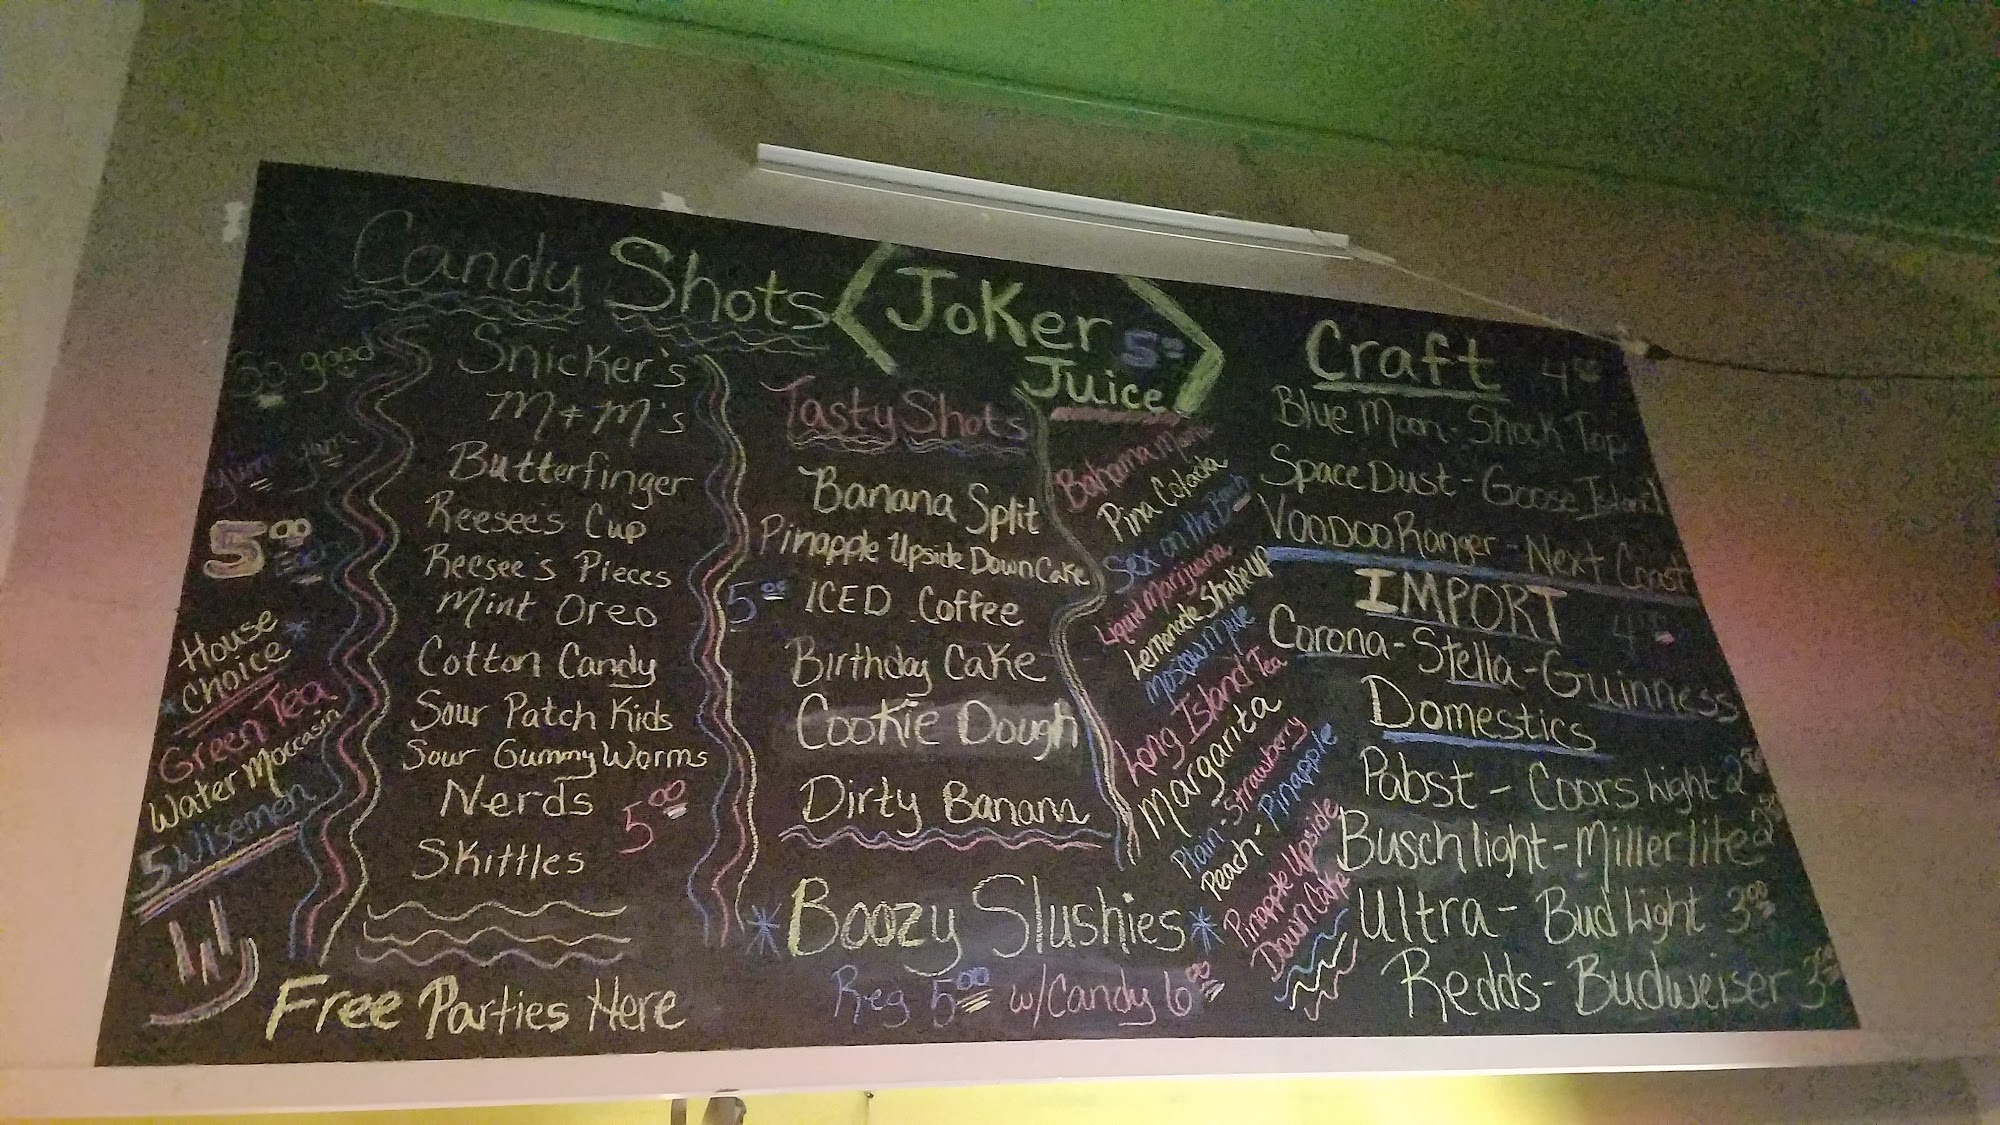 Candy Shots
Joker
Juice 5⁰⁰
So good
yum yum
5⁰⁰
House
Choice
Green Tea
Water Moccasin
5 Wisemen
Snicker's
M+M's
Butterfinger
Reesee's Cup
Reesee's Pieces
Mint Oreo
Cotton Candy
Sour Patch Kids
Sour Gummy Worms
Nerds
5⁰⁰
Skittles
Free Parties Here
Tasty Shots
Banana Split
Pinapple Upside Down Cake
5⁰⁰ ICED Coffee
Birthday Cake
Cookie Dough
Dirty Banana
Boozy Slushies
Reg 5⁰⁰ w/Candy 6⁰⁰
Bahama Mama
Pina Colada
Sex on the Beach
Liquid Marijuana
Lemonade Shake up
Moscow Mule
Long Island Tea
Margarita
Plain - Strawberry
Peach - Pinapple
Pinapple Upside
Down Cake
Craft 4⁰⁰
Blue Moon - Shock Top
Space Dust - Goose Island
VOODOO Ranger - Next Coast
IMPORT 4
Corona - Stella - Guinness
Domestics
Pabst - Coors Light 2
Busch light - Miller lite 2
Ultra - Bud Light 3⁰⁰
Redds - Budweiser 3